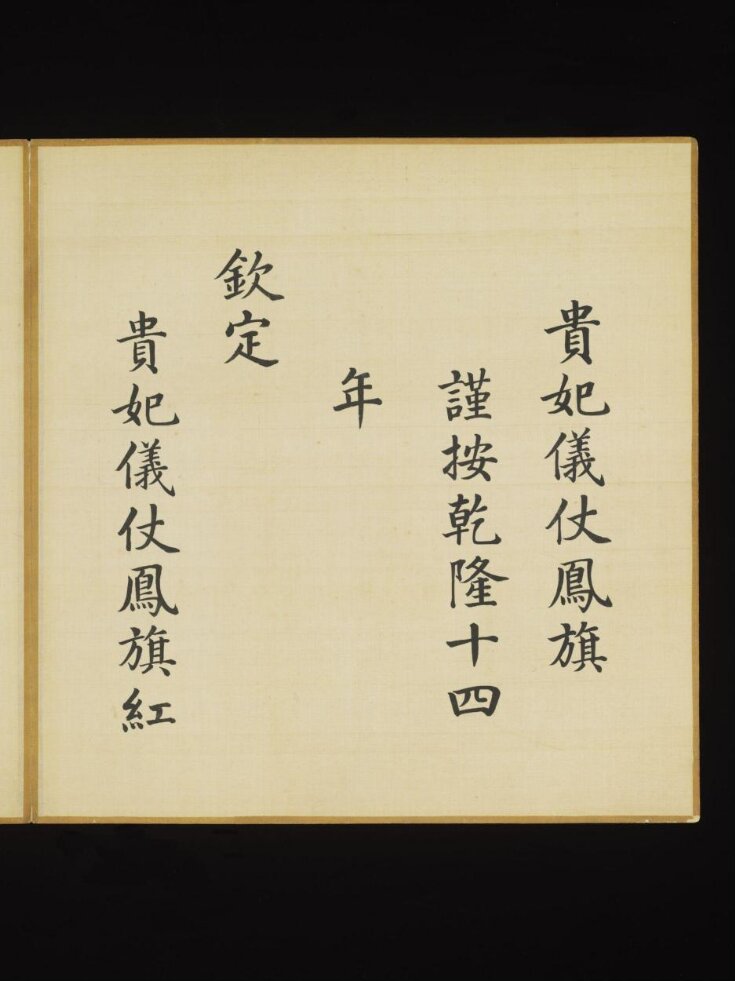 貴妃儀仗鳳旗
謹按乾隆十四
年
欽定
貴妃儀仗鳳旗紅